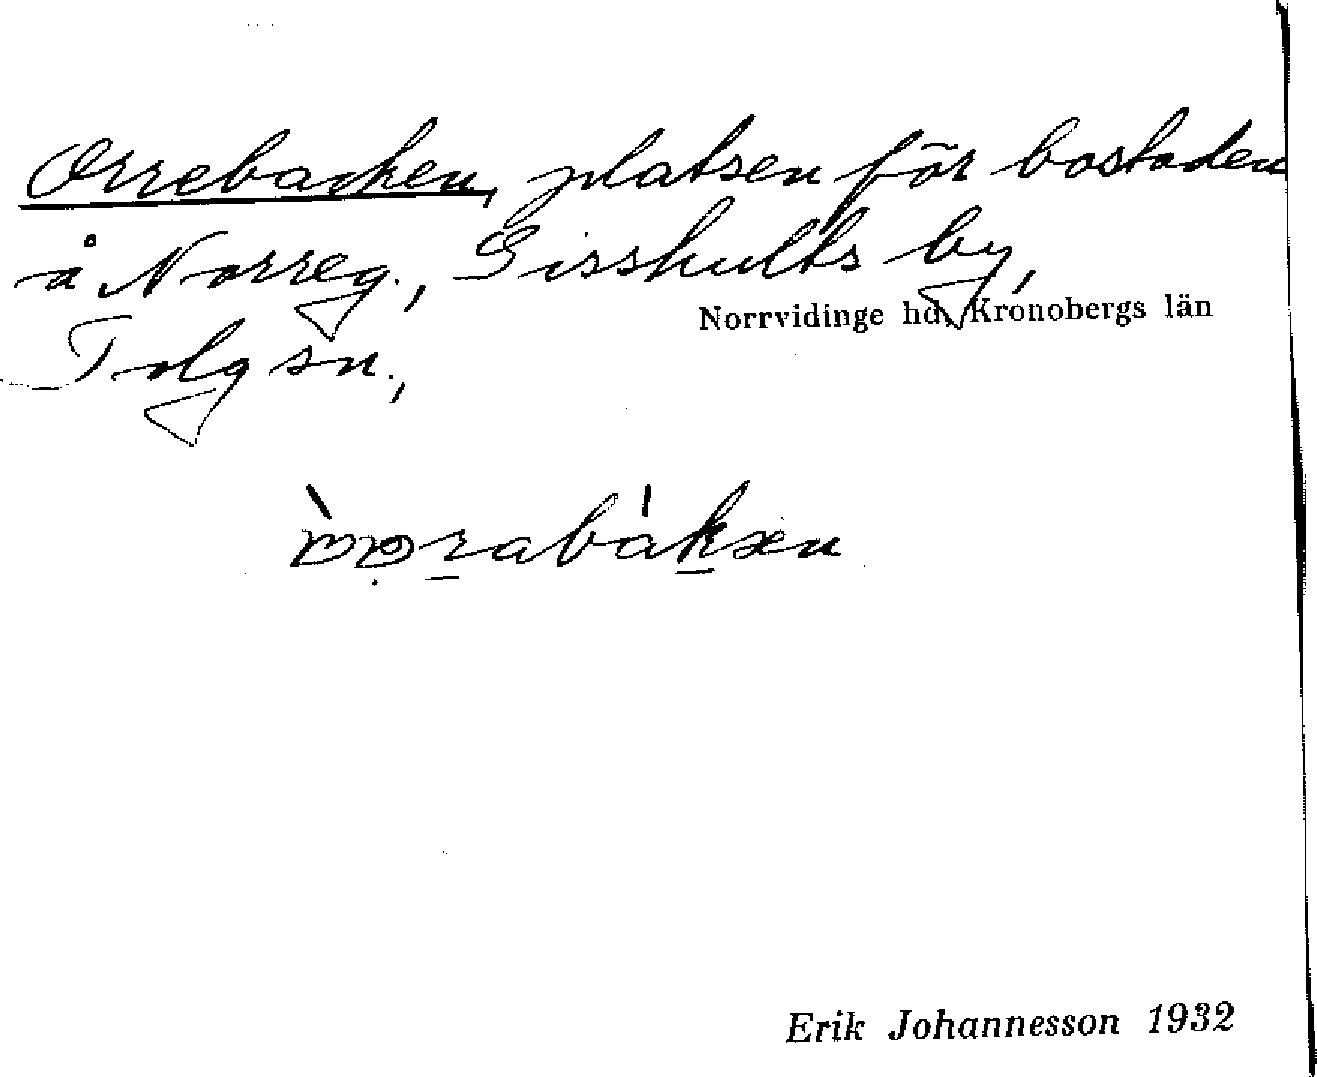 Orrebacken, platsen för bostaden
å Norreg., Gisshults by,
Norrvidinge hd, Kronobergs län
Tolg sn.,
Erik Johannesson 1932